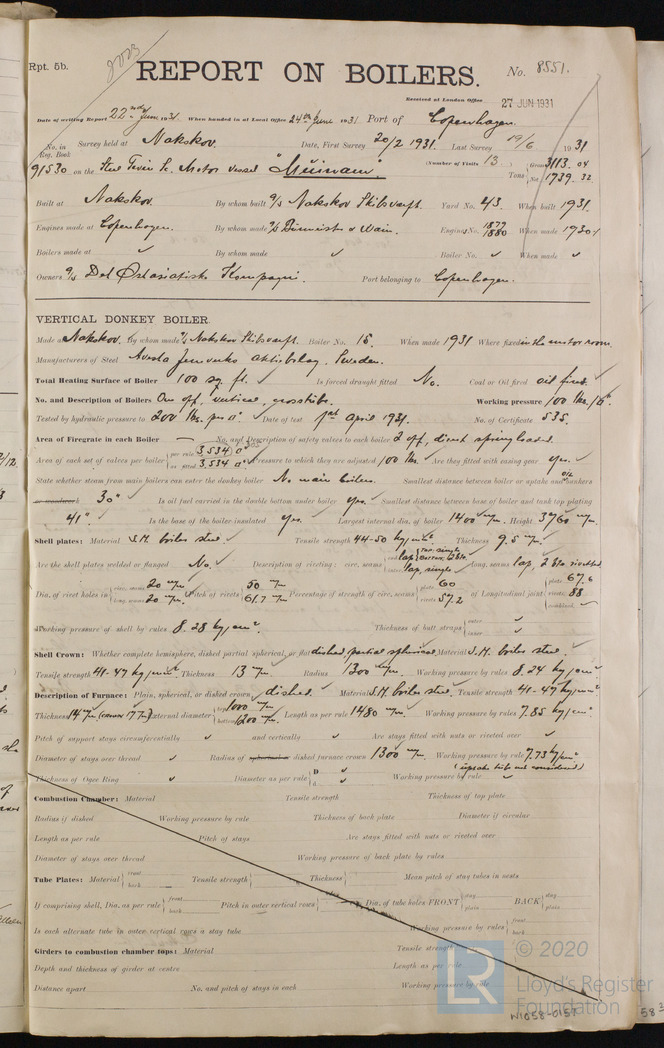 Rpt. 5b.
REPORT ON BOILERS.
No. 8551.
Received at London Office 27 JUN 1931
Date of writing Report 22nd June 1931. When handed in at Local Office 24th June 1931 Port of Copenhagen.
No. in Reg. Book Survey held at Nakskov. Date, First Survey 20/2 1931. Last Survey 19/6 1931
(Number of Visits 13.)
91530 on the Steel Twin Sc. Motor vessel Tons Gross 3113.04 Net 1739.32
Built at Nakskov. By whom built Nakskov Skibsværft. Yard No. 43. When built 1931.
Engines made at Copenhagen. By whom made Burmeister & Wain. Engine No. 1879 1880 When made 1930/1
Boilers made at ✓ By whom made ✓ Boiler No. ✓ When made ✓
Owners A/S Det Østasiatiske Kompagni. Port belonging to Copenhagen.
VERTICAL DONKEY BOILER
Made at Nakskov. By whom made A/S Nakskov Skibsværft. Boiler No. 15. When made 1931 Where fixed in the motor room.
Manufacturers of Steel Avesta Jernverks Aktiebolag, Sweden.
Total Heating Surface of Boiler 100 sq. ft. Is forced draught fitted No. Coal or Oil fired oil fired.
No. and Description of Boilers One off, vertical, crosstube. Working pressure 100 lbs./□".
Tested by hydraulic pressure to 200 lbs. per □" Date of test April 1931. No. of Certificate 535.
Area of Firegrate in each Boiler — No. and Description of safety valves to each boiler 2 off, direct spring loaded.
Area of each set of valves per boiler per rule 3,534 □" as fitted 3,534 □" Pressure to which they are adjusted 100 lbs. Are they fitted with easing gear yes.
State whether steam from main boilers can enter the donkey boiler No main boilers. Smallest distance between boiler or uptake and oil bunkers
or woodwork 30" Is oil fuel carried in the double bottom under boiler yes. Smallest distance between base of boiler and tank top plating
41". Is the base of the boiler insulated yes. Largest internal dia. of boiler 1400 m/m. Height 3760 m/m.
Shell plates: Material S.M. boiler steel Tensile strength 44-50 kg/mm² Thickness 9.5 m/m.
Are the shell plates welded or flanged No. Description of riveting: circ. seams lap, single long. seams lap, 2 ble riveted
Dia. of rivet holes in circ. seams 20 m/m long. seams 20 m/m. Pitch of rivets 50 m/m 61.7 m/m Percentage of strength of circ. seams plate 60 rivets 57.2 of Longitudinal joint plate 67.6 rivets 88 combined ✓
Working pressure of shell by rules 8.28 kg/cm². Thickness of butt straps outer ✓ inner ✓
Shell Crown: Whether complete hemisphere, dished partial spherical, or flat dished partial spherical Material S.M. boiler steel.
Tensile strength 41-47 kg/mm². Thickness 13 m/m. Radius 1300 m/m. Working pressure by rules 8.24 kg/cm²
Description of Furnace: Plain, spherical, or dished crown dished. Material S.M. boiler steel. Tensile strength 41-47 kg/mm²
Thickness 14 m/m (crown 17 m/m) External diameter top 1000 m/m bottom 1200 m/m. Length as per rule 1480 m/m. Working pressure by rules 7.85 kg/cm².
Pitch of support stays circumferentially ✓ and vertically ✓ Are stays fitted with nuts or riveted over ✓
Diameter of stays over thread ✓ Radius of spherical or dished furnace crown 1300 m/m. Working pressure by rule 7.73 kg/cm²
(uptake tube not considered)
Thickness of Ogee Ring ✓ Diameter as per rule D ✓ d ✓ Working pressure by rule ✓
Combustion Chamber: Material Tensile strength Thickness of top plate
Radius if dished Working pressure by rule Thickness of back plate Diameter if circular
Length as per rule Pitch of stays Are stays fitted with nuts or riveted over
Diameter of stays over thread Working pressure of back plate by rules
Tube Plates: Material front back Tensile strength Thickness Mean pitch of stay tubes in nests
If comprising shell, Dia. as per rule front back Pitch in outer vertical rows Dia. of tube holes FRONT stay plain BACK stay plain
Is each alternate tube in outer vertical rows a stay tube Working pressure by rules front back
Girders to combustion chamber tops: Material Tensile strength
Depth and thickness of girder at centre Length as per rule
Distance apart No. and pitch of stays in each Working pressure by rule
© 2020
LR Lloyd's Register
Foundation
W1058-0157